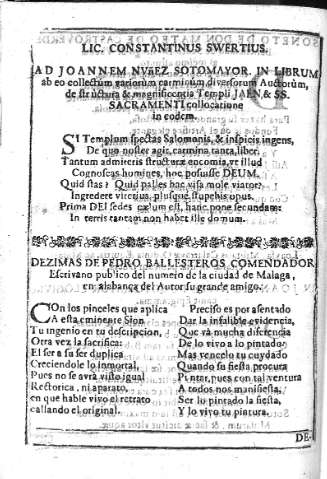 LIC. CONSTANTINUS SWERTIUS.
AD JOANNEM NUÑEZ SOTOMAYOR. IN LIBRUM
ab eo collectum variorum carminum diversorum Auctorum,
de structura & magnificentia Templi JAEN, & SS.
SACRAMENTI collocatione
in eodem.
SI Templum spectas Salomonis, & inspicis ingens,
De quo noster agit, carmina tanta, liber.
Tantum admiteris structuræ encomia, ve illud
Cognoscas homines, hoc posuisse DEUM.
Quid stas? Quid palles hac visa mole viator?
Ingredere viterius, plusque stupebis opus.
Prima DEI sedes cælum est, hanc pone secundam:
In terris tantam non habet ille domum.
DEZIMAS DE PEDRO BALLESTEROS COMENDADOR
Escrivano publico del numero de la ciudad de Malaga,
en alabança del Autor su grande amigo.
COn los pinceles que aplica
A esta eminente Sion
Tu ingenio en tu descripcion,
Otra vez la sacrifica:
El ser a su ser duplica
Creciendole lo inmortal,
Pues no se avrà visto igual
Rectorica, ni aparato,
en que hable vivo el retrato
callando el original.
Preciso es por asentado
Dar la infalible evidencia,
Que và mucha diferencia
De lo vivo a lo pintado:
Mas vencelo tu cuydado
Quando su fiesta procura
Pintar, pues con tal ventura
A todos nos manifiesta,
Ser lo pintado la fiesta,
Y lo vivo tu pintura.
DE-